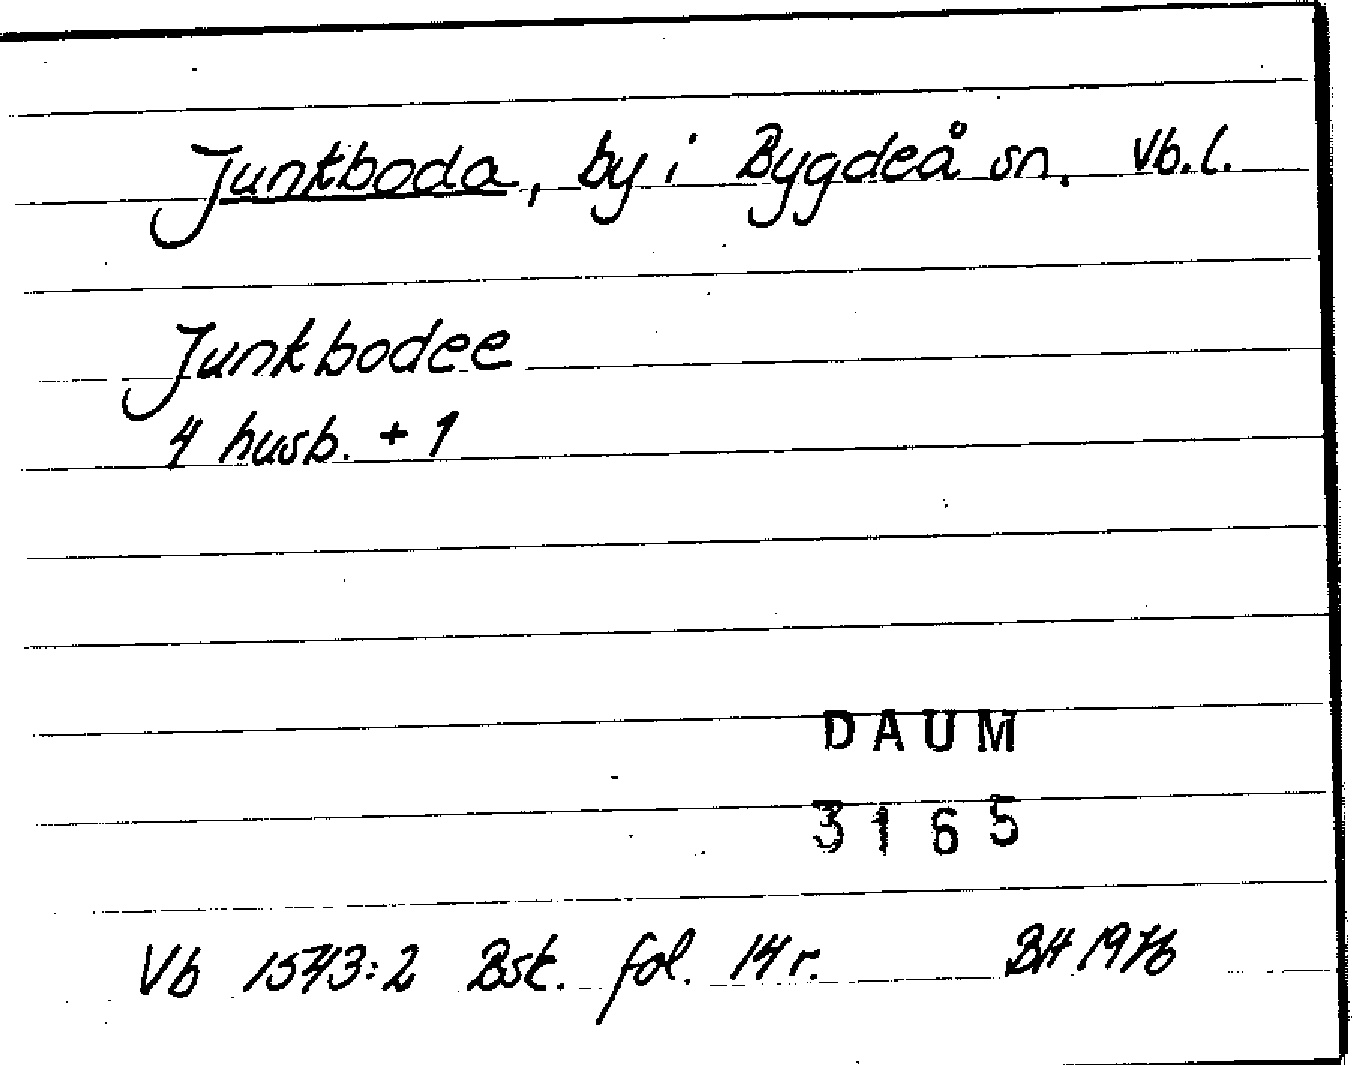 Junkboda, by i Bygdeå sn. Vb.l.
Junkbodee
4 husb. + 1
DAUM
3165
Vb 1543:2 Bsk. fol. 14 r. BH 1976